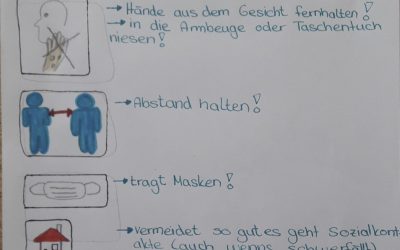 → Hände aus dem Gesicht fernhalten!
→ in die Armbeuge oder Taschentuch
niesen!
→ Abstand halten!
→ tragt Masken!
→ vermeidet so gutes geht Sozialkont-
akte (auch wenns schwerfällt)